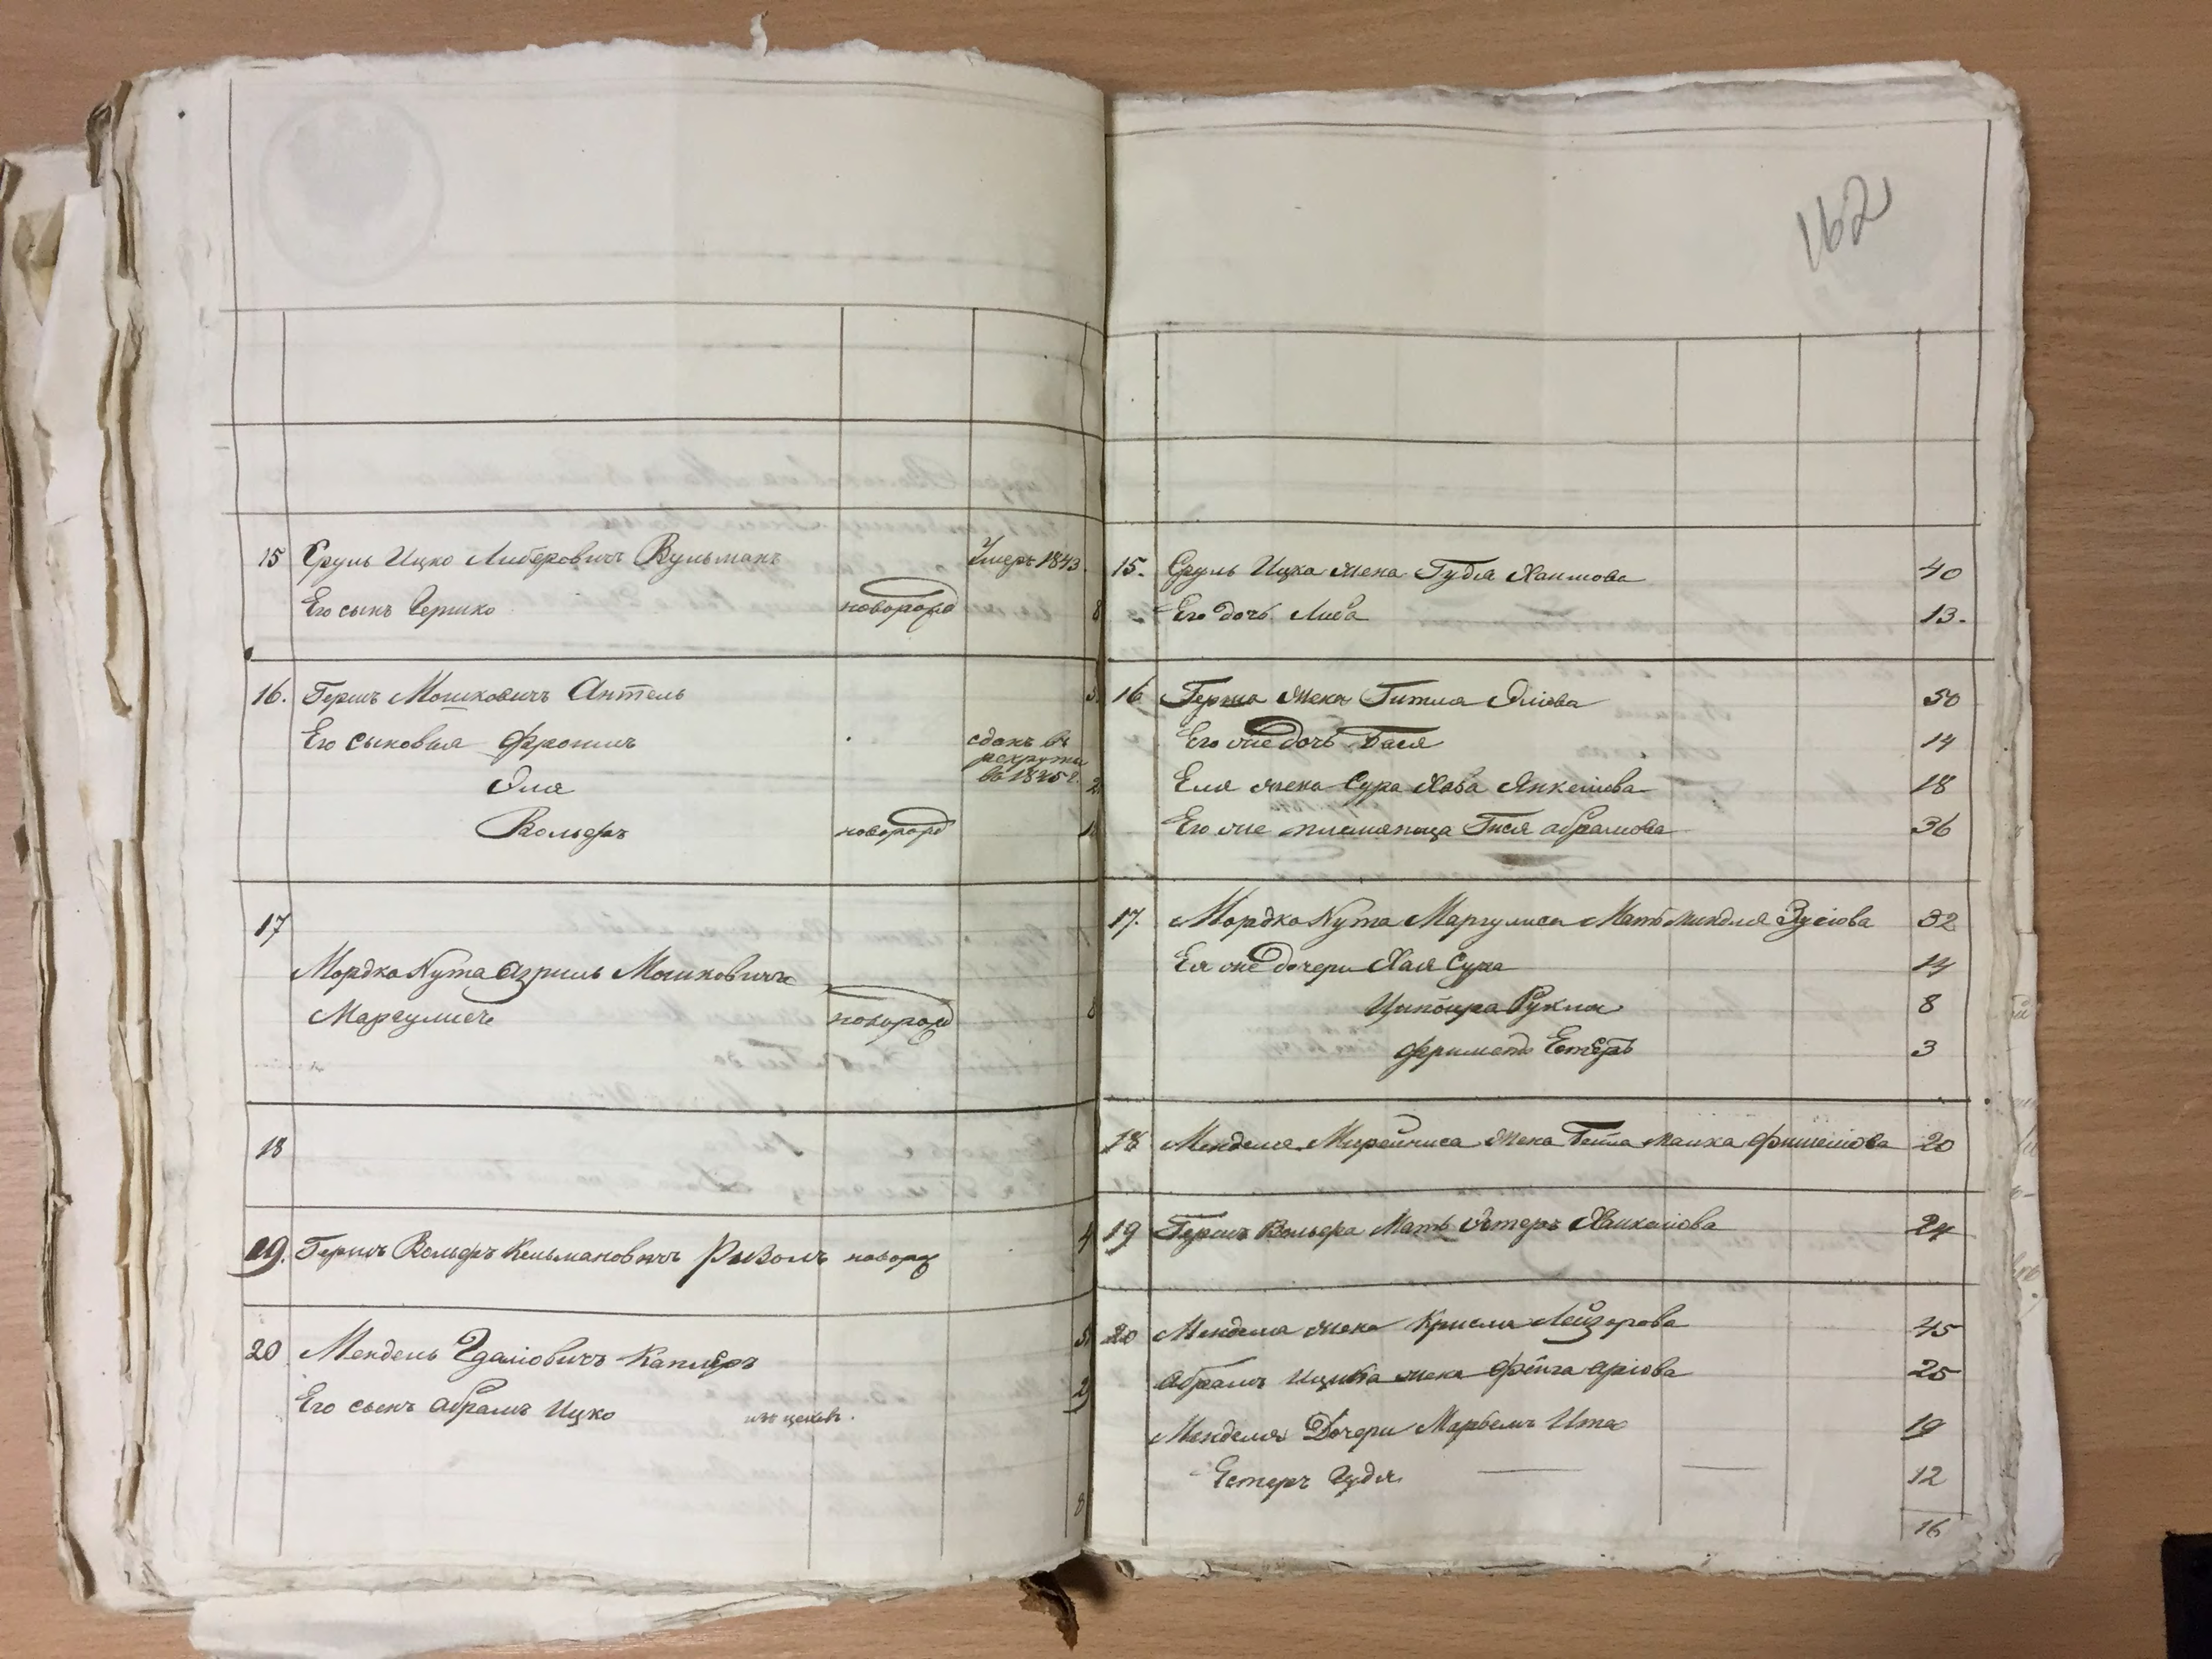 15 Сруль Ицко Либерович Вульманъ Умеръ 1843.
Его сынъ Гершко новорожд 8
16. Гершъ Мошковичъ Антель
Его сыновья Фроимъ сданъ въ рекруты въ 1845 г.
Эля 2
Вольфъ новорожд
17
Мордко Нута Азриль Мошковичъ
Маргулисъ новорожд 8
18
19. Гершъ Вольфъ Кельмановичъ новорожд 4
20 Мендель Гдаліовичъ Каплеръ
Его сынъ Абрамъ Ицко 2
8
162
15. Сруль Ицка жена Гудля Хаимова 40
Его дочь Либа 13.
16 Герша жена Гитля Эліова 50
Его же дочь Бася 14
Еля жена Сура Хава Янкеліова 18
Его же племяница Гися Абрамова 36
17. Мордка Нута Маргулиса Мать Миндля Зусіова 32
Ея же дочери Хая Сура 14
Ципойра Рухля 8
Фриметъ Естеръ 3
18 Менделя жена Бейла Малка Фишеліова 20
19 Герша Вольфа Мать Эстеръ Хаикеліова 24
20 Менделя жена Крисля Лейзорова 45
Абрамъ Ицика жена Фейга Аріова 25
Менделя Дочери Марьемъ Ита 19
Естеръ Гудя 12
16